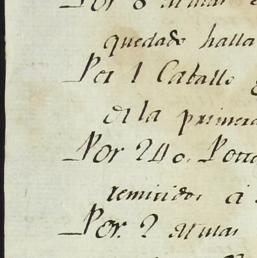 Por 8 Mulas
quedado halla
Por 1 Caballo
de la primera
Por 240. Potro
remitidos á
Por. 2 Mulas